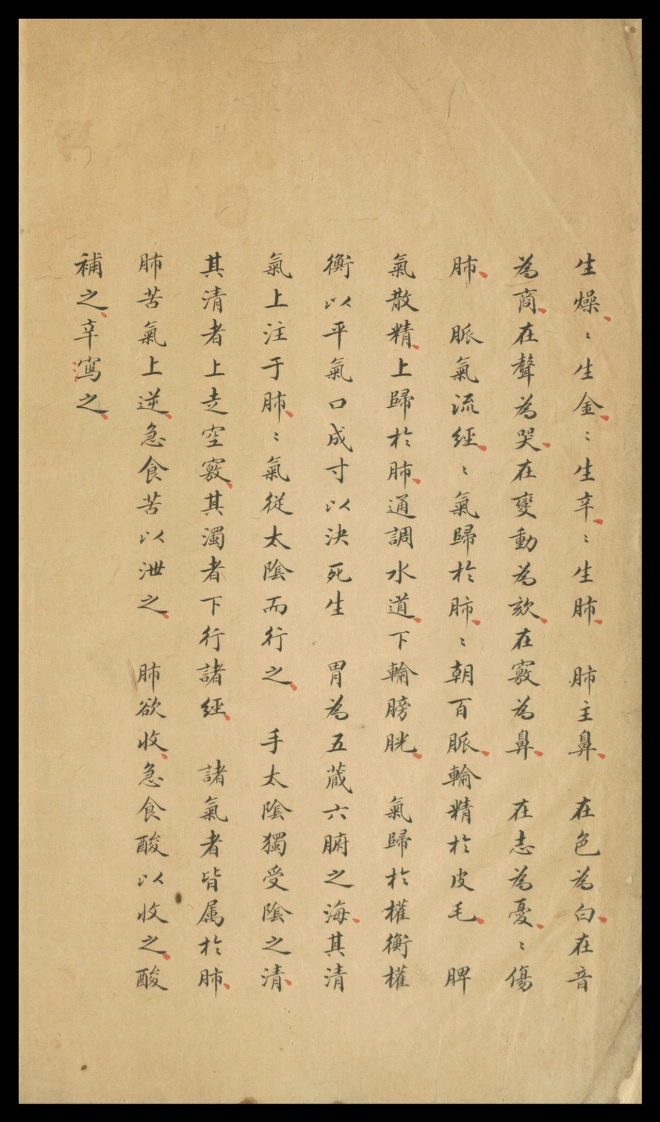 生燥、〻生金、〻生辛、〻生肺、　肺主鼻、　在色為白、在音
為商、在聲為哭、在變動為欬、在竅為鼻、　在志為憂、〻傷
肺、　脈氣流經、〻氣歸於肺、〻朝百脈、輸精於皮毛、　脾
氣散精、上歸於肺、通調水道、下輸膀胱、　氣歸於權衡權
衡以平氣口成寸以決死生　胃為五藏六腑之海、其清
氣上注于肺、〻氣從太陰而行之、　手太陰獨受陰之清、
其清者上走空竅、其濁者下行諸經、　諸氣者皆属於肺、
肺苦氣上逆、急食苦以泄之、　肺欲收、急食酸以收之、酸
補之、辛寫之、